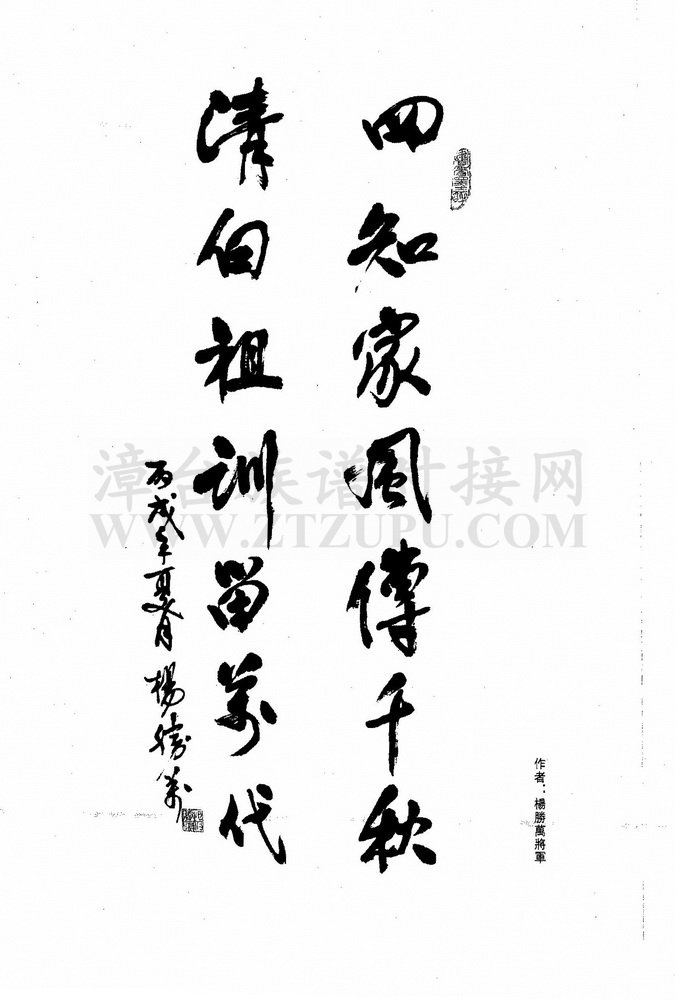 四知家風傳千秋
清白祖訓留萬代
丙戌年夏月 楊勝萬
作者：楊勝萬將軍
漳台族谱对接网
WWW.ZTZUPU.COM